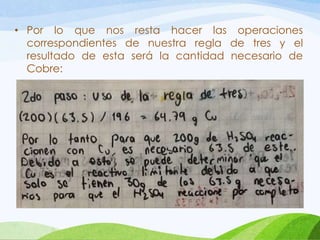 • Por lo que nos resta hacer las operaciones
correspondientes de nuestra regla de tres y el
resultado de esta será la cantidad necesario de
Cobre:
2do paso: uso de la regla de tres
(200)(63.5) / 196 = 64.79 g Cu
Por lo tanto, para que 200g de H₂SO₄ reac-
cionen con Cu, es necesario 63.5 de este.
Debido a esto, se puede determinar que el
Cu es el reactivo limitante debido a que
solo se tienen 30g de los 63.5 g necesa-
rios para que el H₂SO₄ reaccione por completo